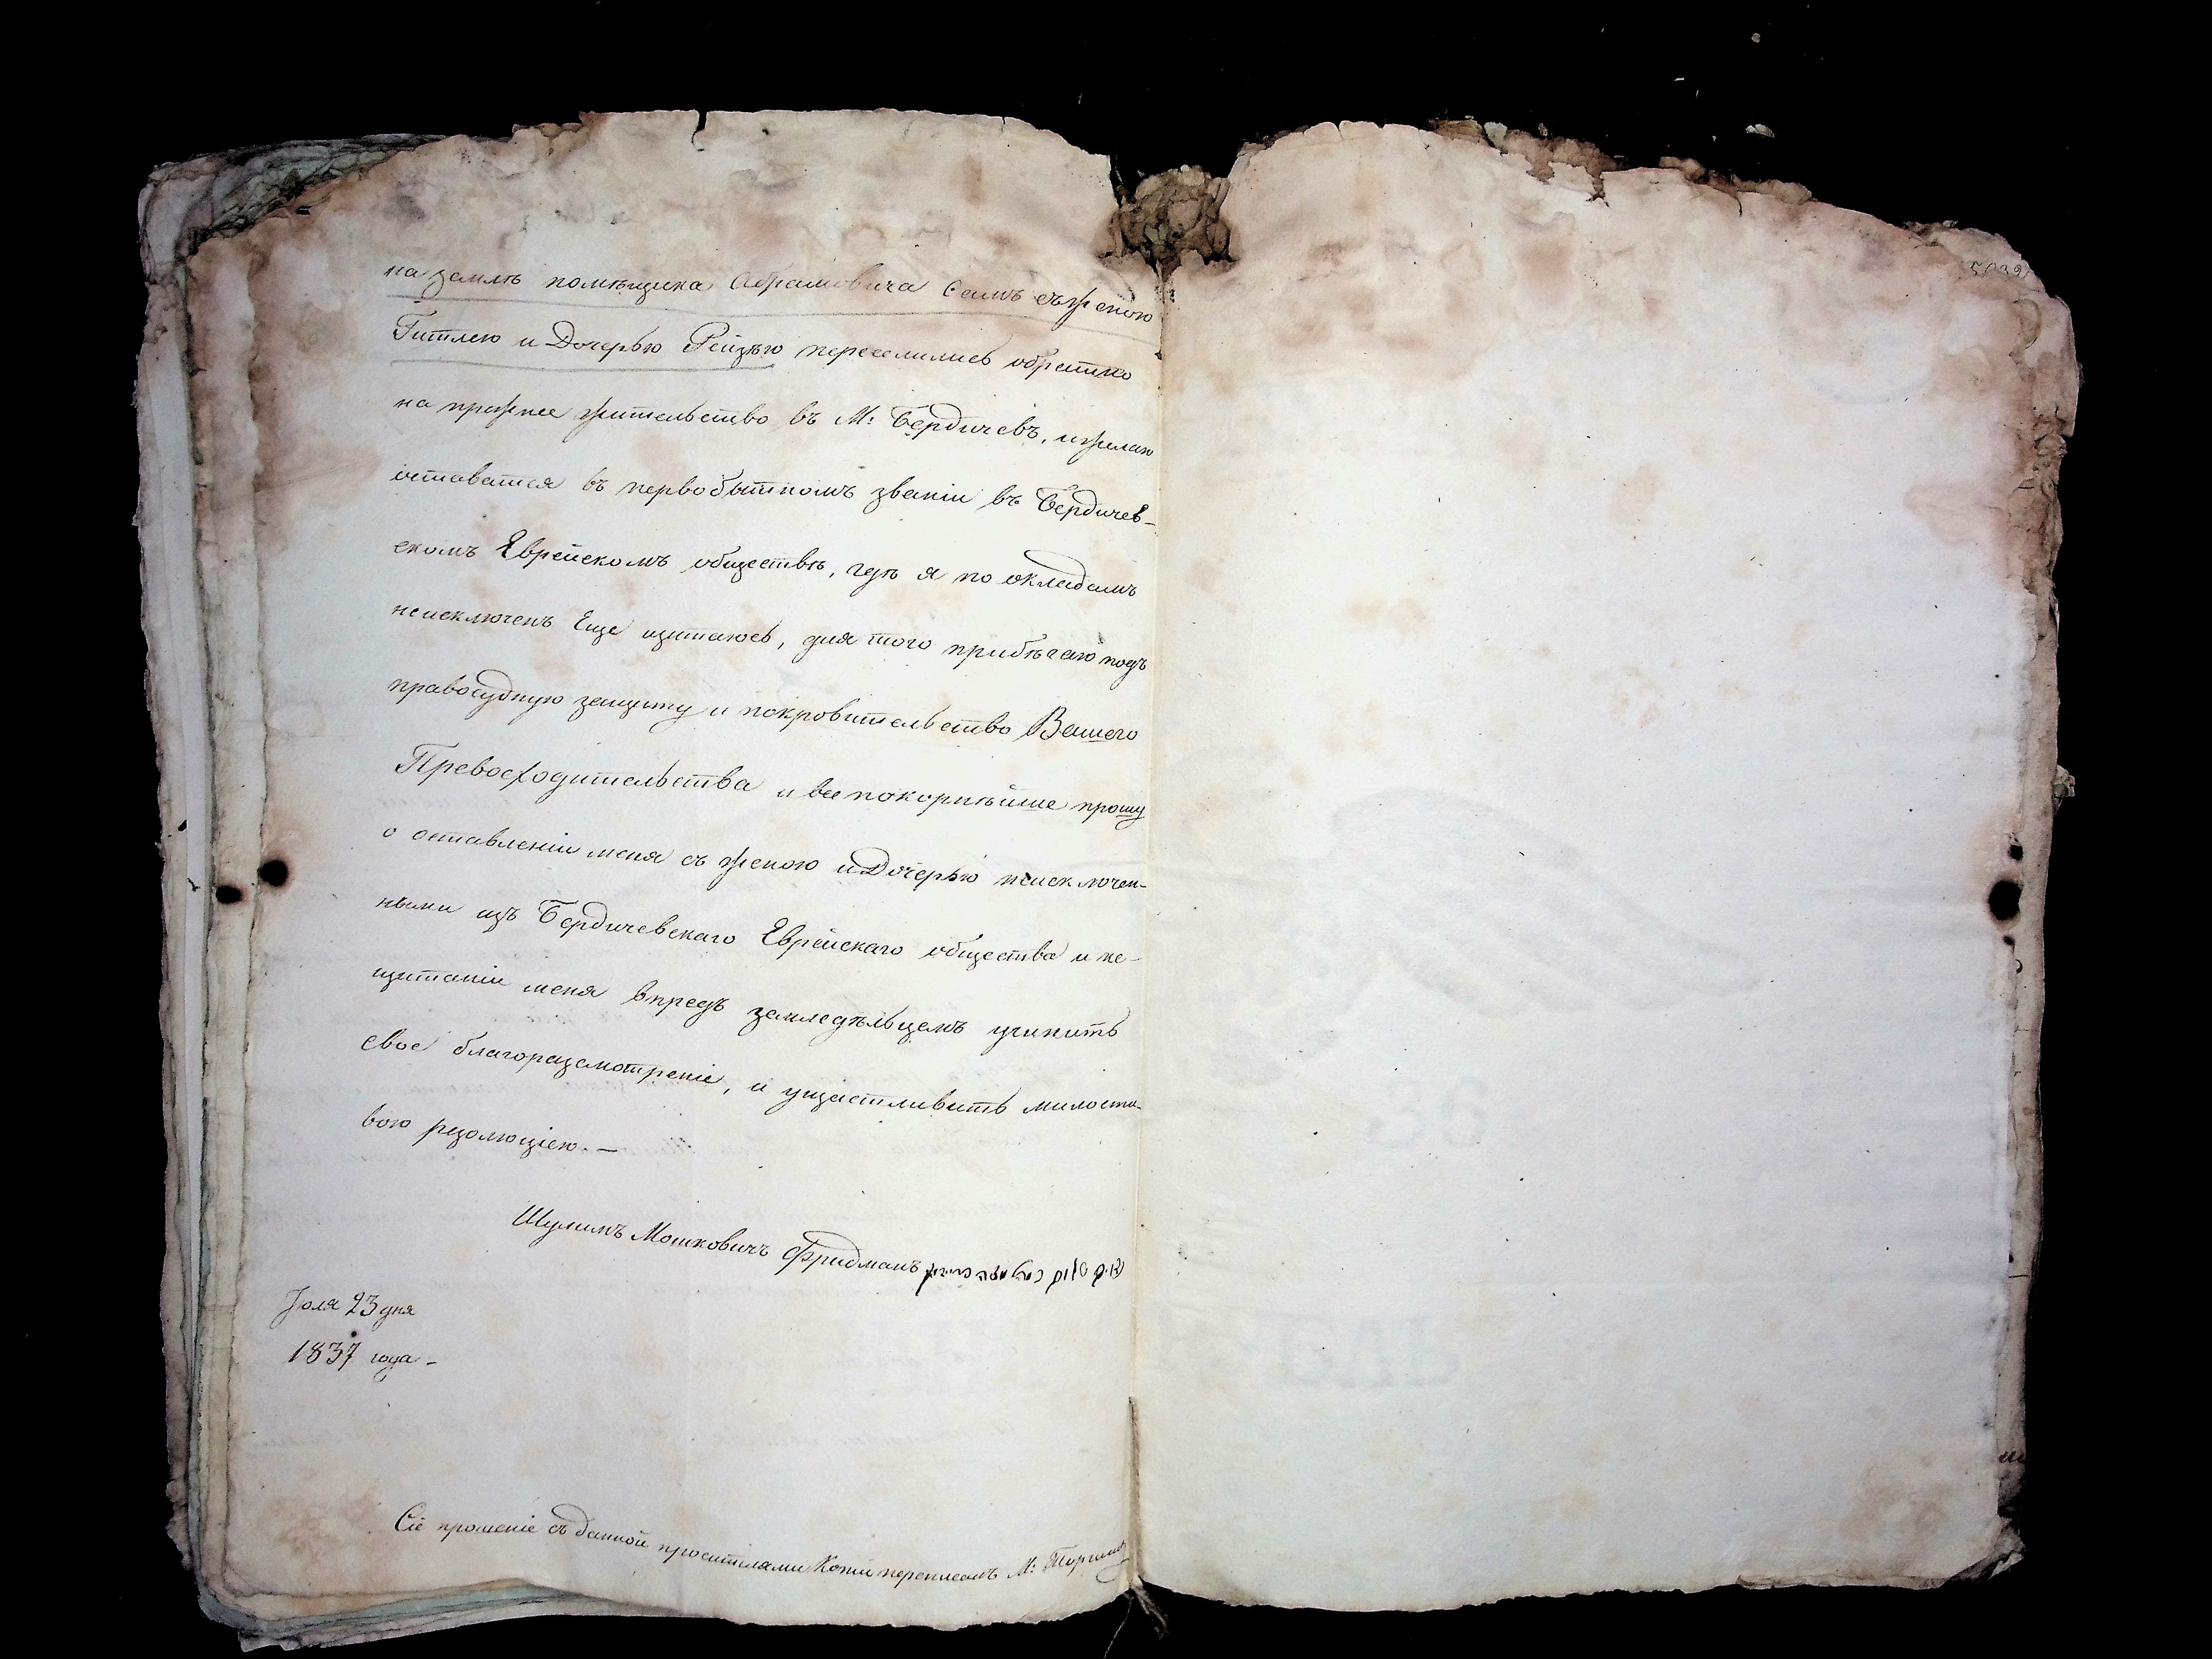 на землѣ помѣщика Абрамовича самъ съ женою
Гитлею и Дочерью Рейзѣю переселились обратно
на прежнее жительство въ М: Бердичевъ, и желаю
оставатся въ первобытномъ званіи въ Бердичев-
скомъ Еврейскомъ обществѣ, гдѣ я по окладамъ
неисключенъ Еще щитаюсь, для того прибѣгаю подъ
правосудную защиту и покровительство Вашего
Превосходительства и всепокорнѣйше прошу
о оставленіи меня съ женою и Дочерью неисключен-
ными изъ Бердичевскаго Еврейскаго общества и не-
щитаніи меня впредъ земледѣльцемъ учинить
свое благоразсмотреніе, и ущастливить милости-
вою резолюціею. —
Шулимъ Мошковичъ Фридманъ
Іюля 23 дня
1837 года -
Сіе прошеніе съ данной просителями Копіи переписалъ М: